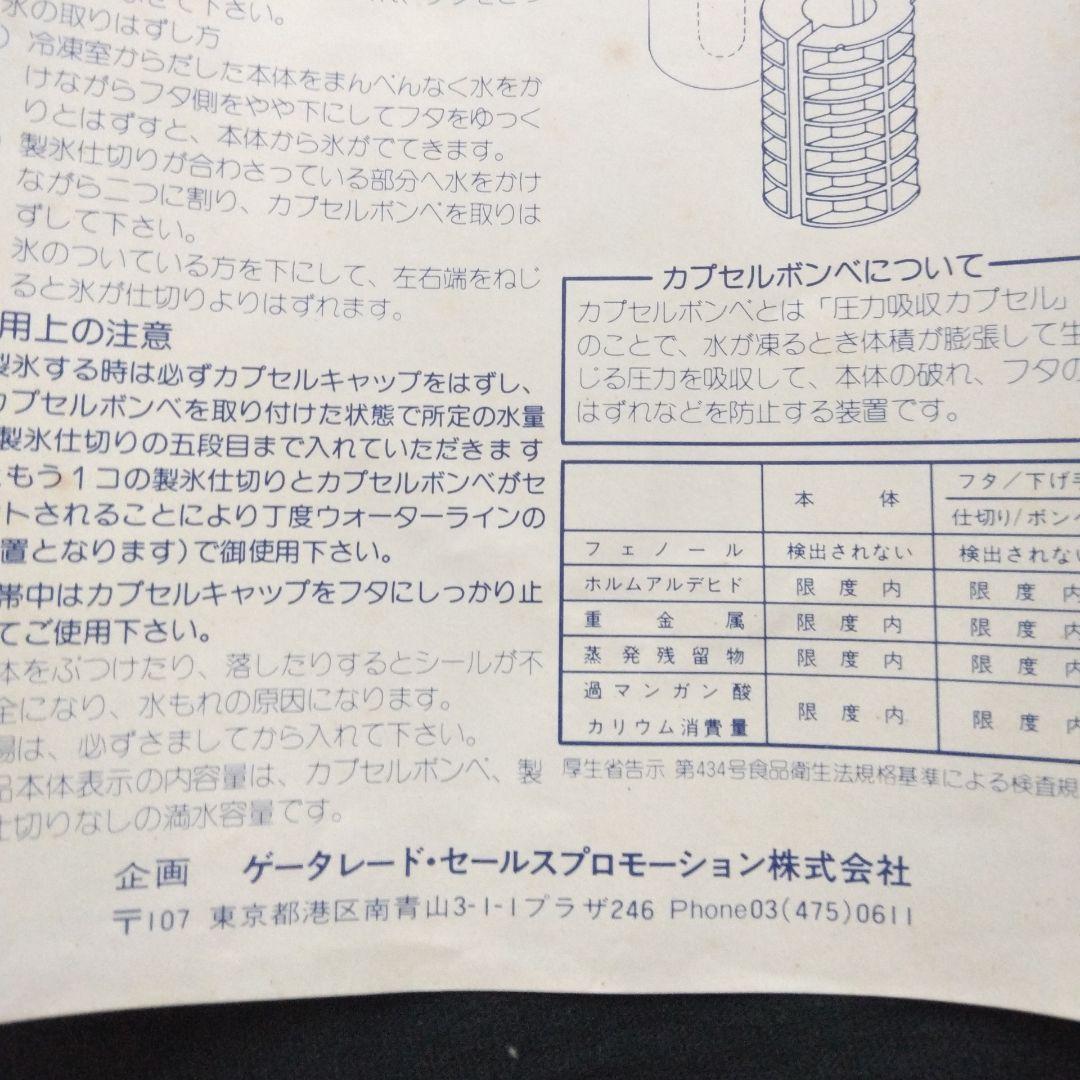 氷の取りはずし方
冷凍室からだした本体をまんべんなく水をか
けながらフタ側をやや下にしてフタをゆっく
りとはずすと、本体から氷がでてきます。
製氷仕切りが合わさっている部分へ水をかけ
ながら二つに割り、カプセルボンベを取りは
ずして下さい。
氷のついている方を下にして、左右端をねじ
ると氷が仕切りよりはずれます。
用上の注意
製氷する時は必ずカプセルキャップをはずし、
カプセルボンベを取り付けた状態で所定の水量
製氷仕切りの五段目まで入れていただきます
もう1コの製氷仕切りとカプセルボンベがセ
トされることにより丁度ウォーターラインの
置となります)で御使用下さい。
帯中はカプセルキャップをフタにしっかり止
てご使用下さい。
体をぶつけたり、落したりするとシールが不
全になり、水もれの原因になります。
湯は、必ずさましてから入れて下さい。
品本体表示の内容量は、カプセルボンベ、製
仕切りなしの満水容量です。
カプセルボンベについて
カプセルボンベとは「圧力吸収カプセル」
のことで、水が凍るとき体積が膨張して生
じる圧力を吸収して、本体の破れ、フタの
はずれなどを防止する装置です。
本体 フタ/下げ手
仕切り/ボンベ
フェノール 検出されない 検出されない
ホルムアルデヒド 限度内 限度内
重金属 限度内 限度内
蒸発残留物 限度内 限度内
過マンガン酸
カリウム消費量 限度内 限度内
厚生省告示 第434号食品衛生法規格基準による検査規
企画 ゲータレード・セールスプロモーション株式会社
〒107 東京都港区南青山3-1-1プラザ246 Phone03(475)0611